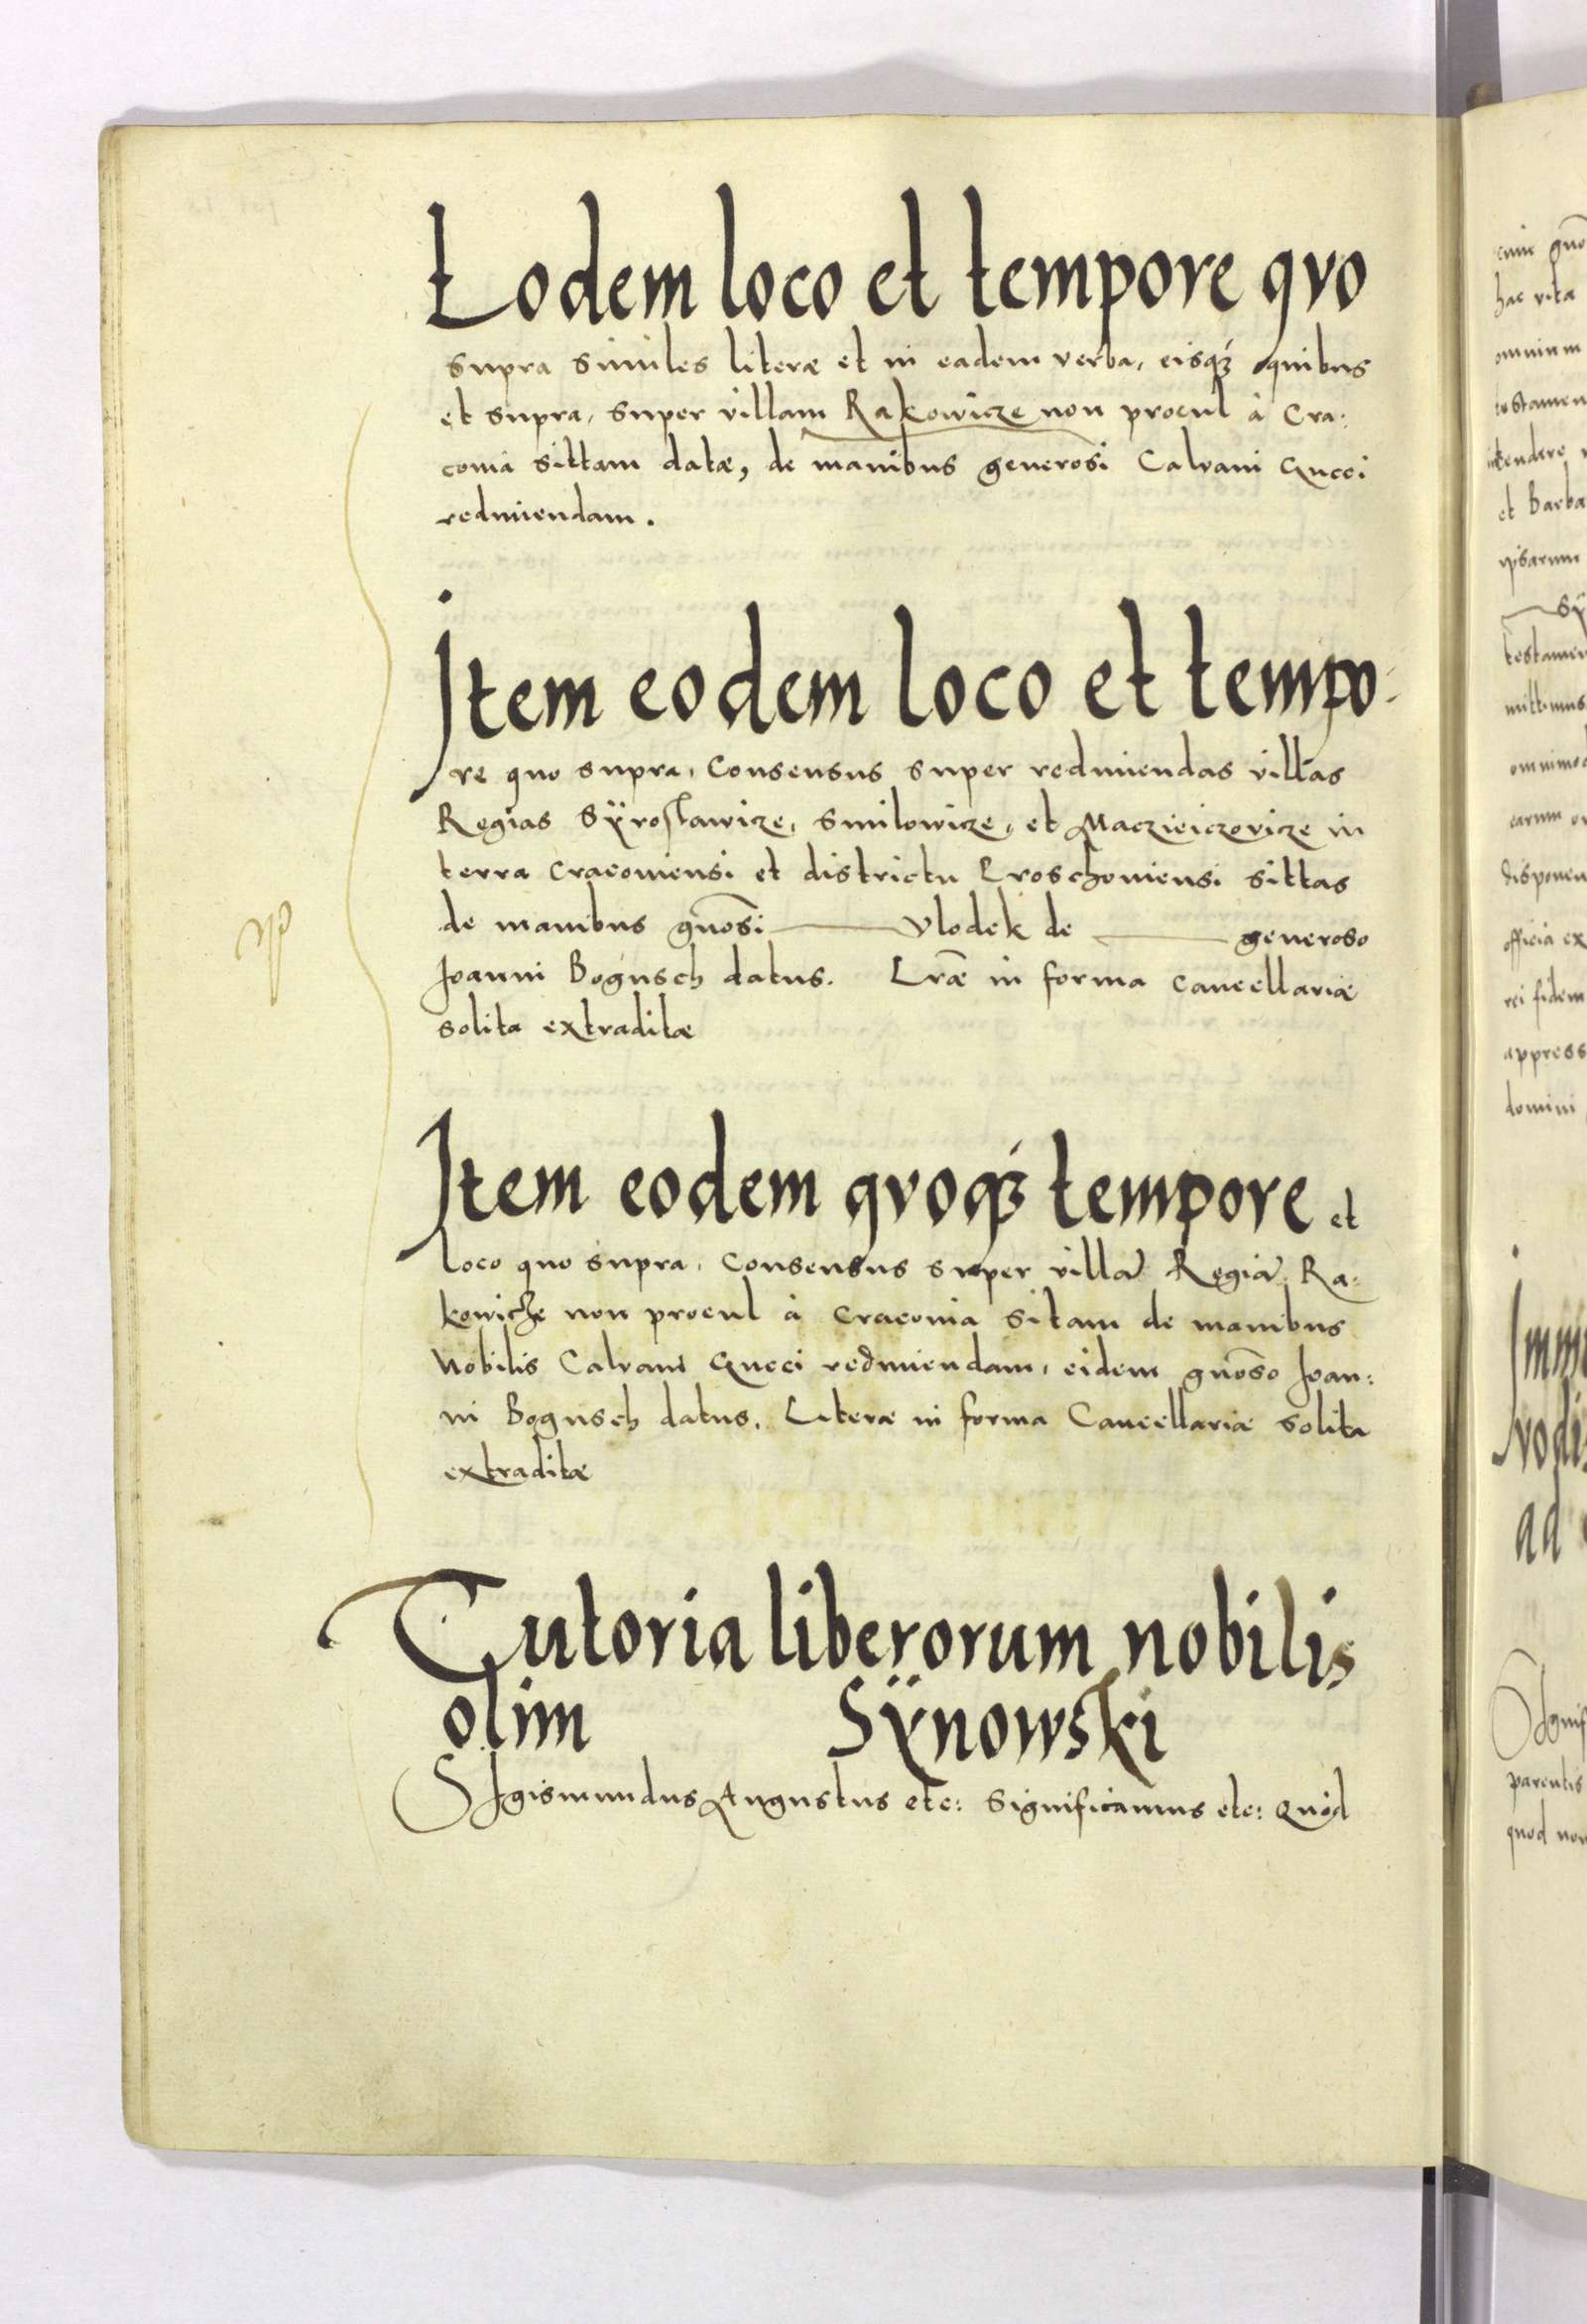 Eodem loco et tempore qvo
supra similes literæ et in eadem verba, eisqꝫ quibus
et supra, super villam Rakowicze non procul à Cra-
couia sittam datæ, de manibus generosi Calvani Gucci
redimendam.
Item eodem loco et tempo-
re quo supra, Consensus super redimendas villas
Regias Sÿrosławicze, Smilowicze, et Maczieiczovicze in
terra cracouiensi et districtu Proschouiensi sittas
de manibus gnõsi Vlodek de generoso
Joanni Bogusch datus. Lræ̃ in forma cancellariæ
solita extraditæ
Item eodem qvoqꝫ tempore et
loco quo supra, Consensus super villã Regiã Ra-
kowicze non procul à Cracouia sitam de manibus
Nobilis Calvani Gucci redimendam, eidem gnõso Joan-
ni Bogusch datus. Literæ in forma Cancellariæ solita
extraditæ
Tutoria liberorum nobilis
olim Sÿnowski
Sigismundus Augustus etc: Significamus etc: Quòd
cum
hac vita
omnium
testamen
intendere
et Barba
ipsarum
Sÿ
testamen
mittimus
omnimod
earum
disponen
officia ex
rei fidem
appress
domini
Immu
vodis
ad
parentis
quod non